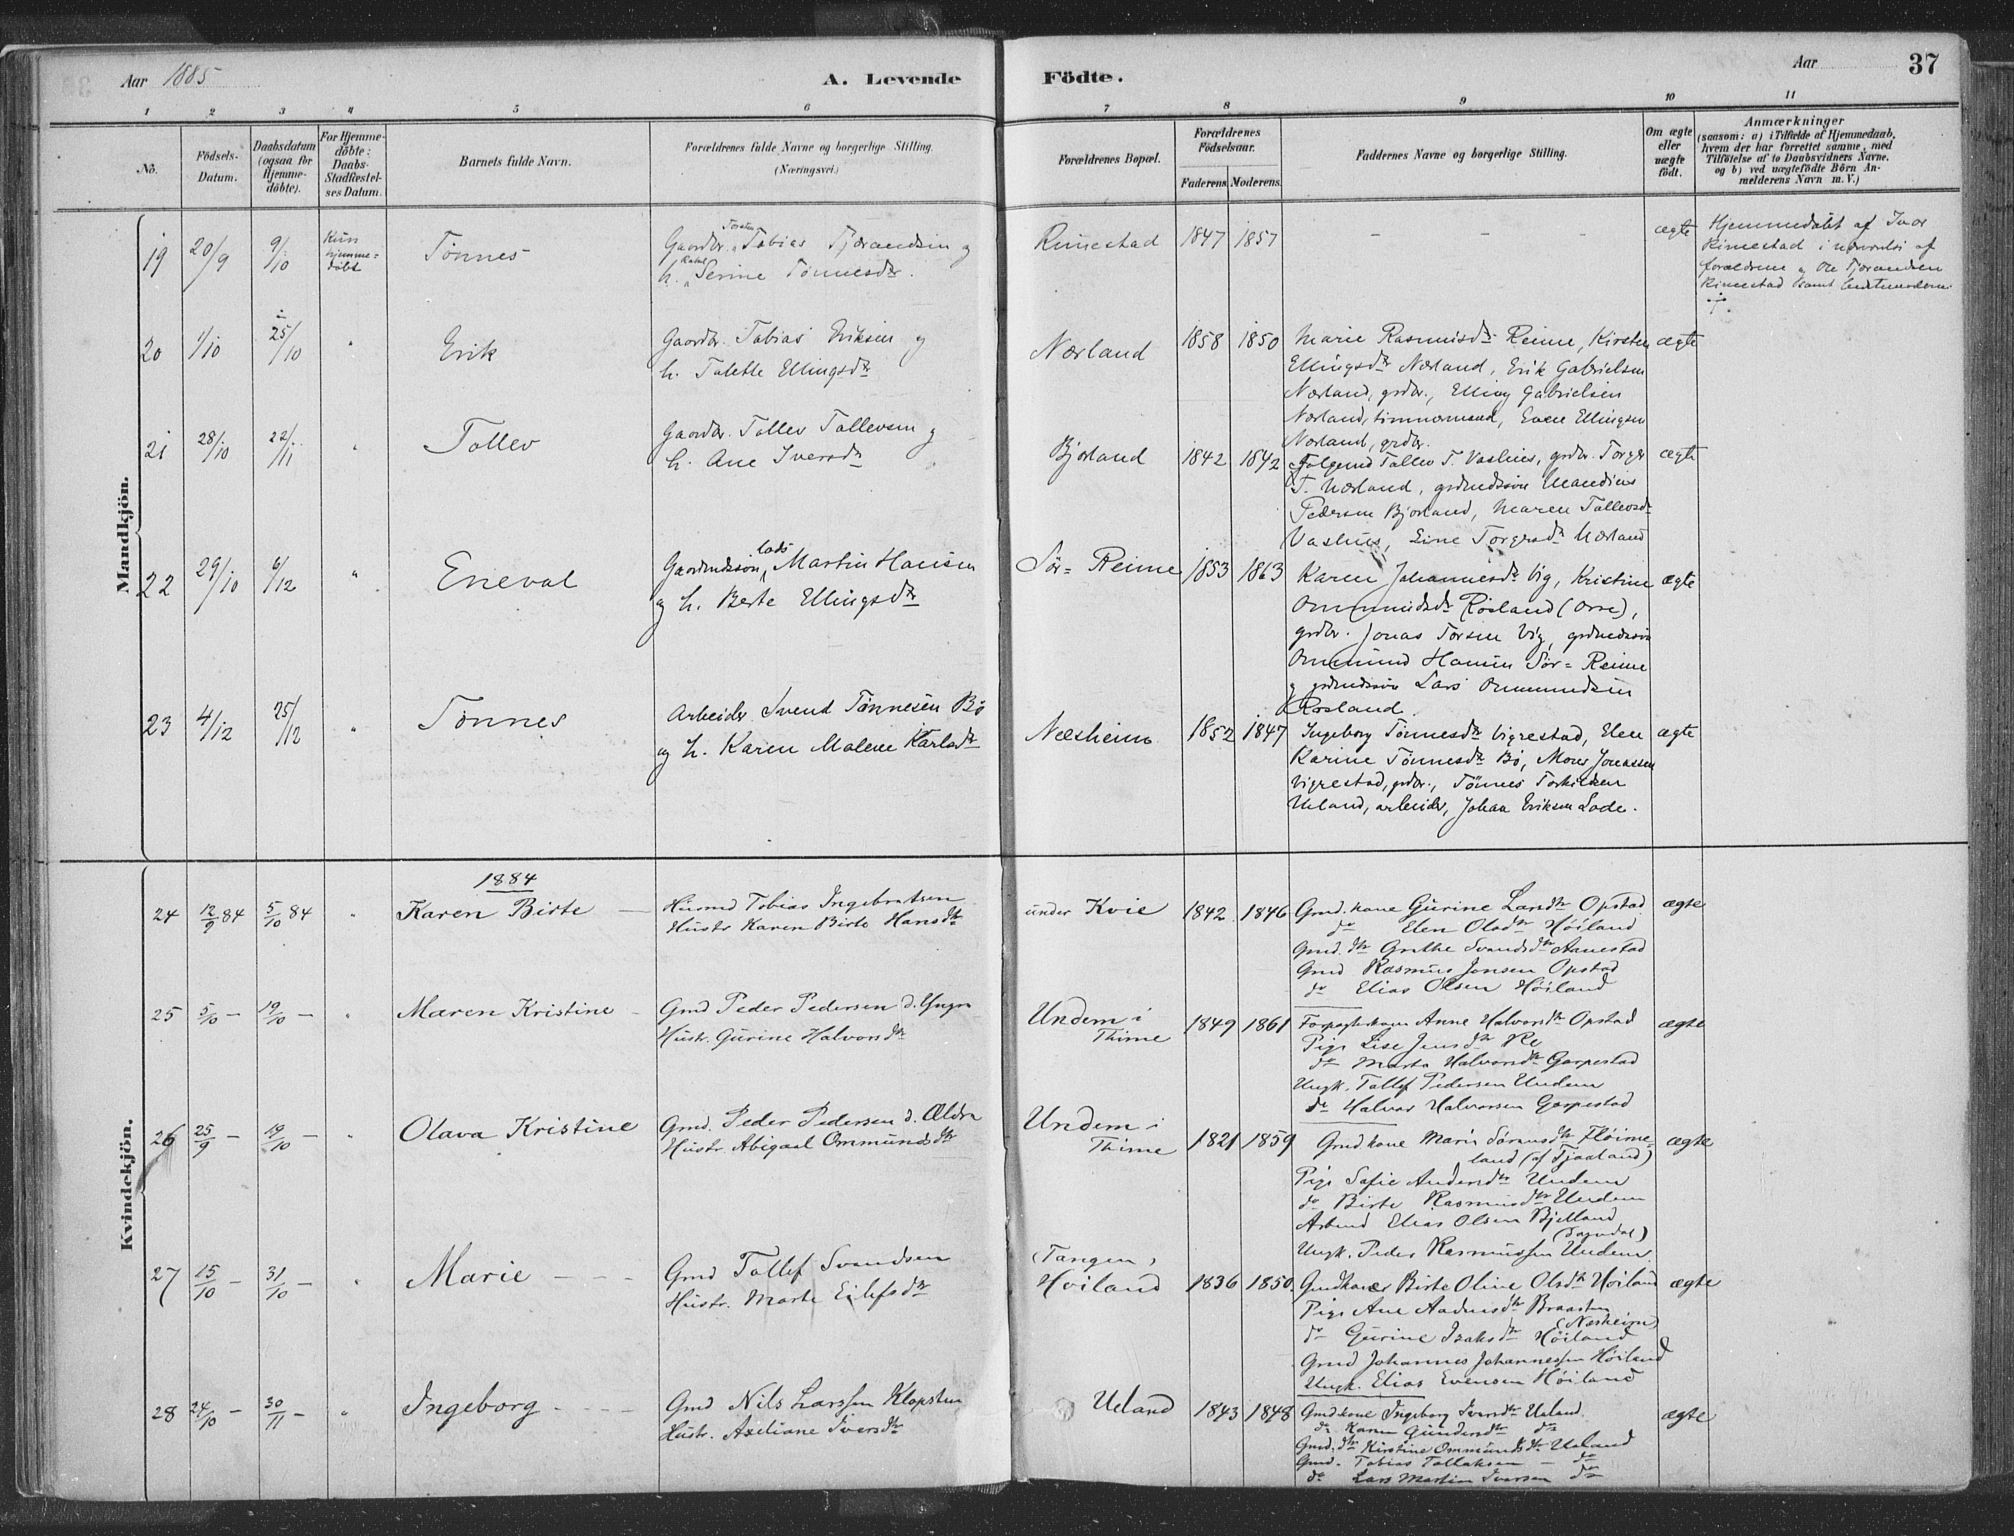 Aar 1885
A. Levende
Födte.
Aar
37
1 2 3 4 5 6 7 8 9 10 11
No.
Födsels-
Datum.
Daabsdatum
(ogsaa for
Hjemme-
döbte).
For Hjemme-
döbte:
Daabs-
Stadfæstel-
ses Datum.
Barnets fulde Navn.
Forældrenes fulde Navne og borgerlige Stilling.
(Næringsvei.)
Forældrenes Bopæl.
Forældrenes
Födselsaar.
Faderens. Moderens.
Faddernes Navne og borgerlige Stilling.
Om ægte
eller
uægte
födt.
Anmærkninger
(saasom: a) i Tilfælde af Hjemmedaab,
hvem der har forrettet samme, med
Tilföielse af to Daabsvidners Navne.
og b) ved uægtefödte Börn An-
melderens Navn m. V.)
Mandkjön.
19 20/9 9/10
Kun
hjemme-
døbt
Tönnes
Torsten
Gaardbr. Tobias Tjerandsen og
Rakel
h. Serine Tönnesdr.
Rimestad 1847 1857 - - - - ægte
Hjemmedøbt af Ivar
Rimestad i nærværelse af
forældrene og Ole Tjerandsen
Rimestad samt
20 1/10 25/10 " Erik
Gaardbr. Tobias Eriksen og
h. Talette Ellingsdr
Nærland 1858 1850
Marie Rasmusdr Reime, Kirsten
Ellingsdr Nærland, Erik Gabrielsen
Nærland, grdbr., Elling Gabrielsen
Nærland, timmermand, Even Ellingsen
Nærland, grdbr.
ægte
21 28/10 22/11 " Tollev
Gaardbr. Tollev Tollevsen og
h. Ane Iversdr
Bjorland 1842 1842
Tollev T. Vashus, grdbr. Torger
T. Nærland, grdmdssøn Mandius
Pedersen Bjorland, Maren Tollevsdr
Vashus, Line Torgersdr Nærland
ægte
22 29/10 6/12 " Eneval
Lads
Gaardmdssøn Martin Hansen
og h. Berte Ellingsdr
Sör-Reime 1853 1863
Karen Johannesdr Vig, Kristine
Ommundsdr Rosland (Orre),
grdbr. Jonas Torsen Vig, grdmdssøn
Ommund Hansen Sör-Reime
og grdmdssøn Lars Ommundsen
Rosland
ægte
23 4/12 25/12 " Tönnes
Arbeider Svend Tönnesen Bö
og h. Karen Malene Karlsdr
Næsheim 1852 1847
Ingeborg Tönnesdr Vigrestad, Elen
Karine Tönnesdr Bö, Mons Jonassen
Vigrestad, grdbr., Tönnes Torkildsen
Ueland, arbeider, Johan Eriksen Lode.
ægte
Kvindekjön.
1884
24 12/9 84 5/10 84 " Karen Birte
Husmd Tobias Ingebretsen
Hustr Karen Birte Hansdtr
under Kvie 1842 1846
Gmd. kone Gurine Larsdtr Opstad
do Elen Olsdtr Höiland
Gmd. dtr Grethe Svendsdtr Aanestad
Gmd Rasmus Jonsen Opstad
do Elias Olsen Höiland
ægte
25 5/10 - 19/10 - " Maren Kristine -
Gmd Peder Pedersen d. Yngre
Hustr. Gurine Halvorsdtr
Undem i
Thime
1849 1861
Anne Halvorsdtr Opstad
Pige Lise Jensdtr Re
do Marta Halvorsdtr Garpestad
Ungk. Tollef Pedersen Undem
do Halvor Halvorsen Garpestad
ægte
26 25/9 - 19/10 - " Olava Kristine
Gmd. Peder Pedersen d. Ældre
Hustr. Abigael Ommundsdtr
Undem i
Thime
1821 1859
Gmdkone Maria Sörensdtr Flöime-
land (af Tjaaland)
Pige Safie Andersdtr Undem
do Birte Rasmusdtr Undem
Arbmd Elias Olsen Bjelland
(Sogndal)
Ungk. Peder Rasmussen Undem
ægte
27 15/10 - 31/10 - " Marie - - -
Gmd Tollef Svendsen
Hustr. Marte Eilefsdtr
(Tangen)
Höiland 1836 1850.
Gmdkone Birte Oline Olsdtr Höiland
Pige Ane Aadnesdtr Braasten
(Næsheim)
do Gurine Isaksdtr Höiland
Gmd Johannes Johannessen Höiland
Ungk. Elias Evensen Höiland
ægte
28 24/10 - 30/11 - " Ingeborg - - -
Gmd Nils Larssen Klopsten
Hustr. Axeliane Iversdtr
Ueland 1843 1848
Gmdkone Ingeborg Iversdtr Ueland.
do Karen Gundersdtr do
Gmd. dtr Kirstine Ommundsdtr Ueland
Gmd. Tobias Tollaksen - do
do Lars Martin Iversen do
ægte